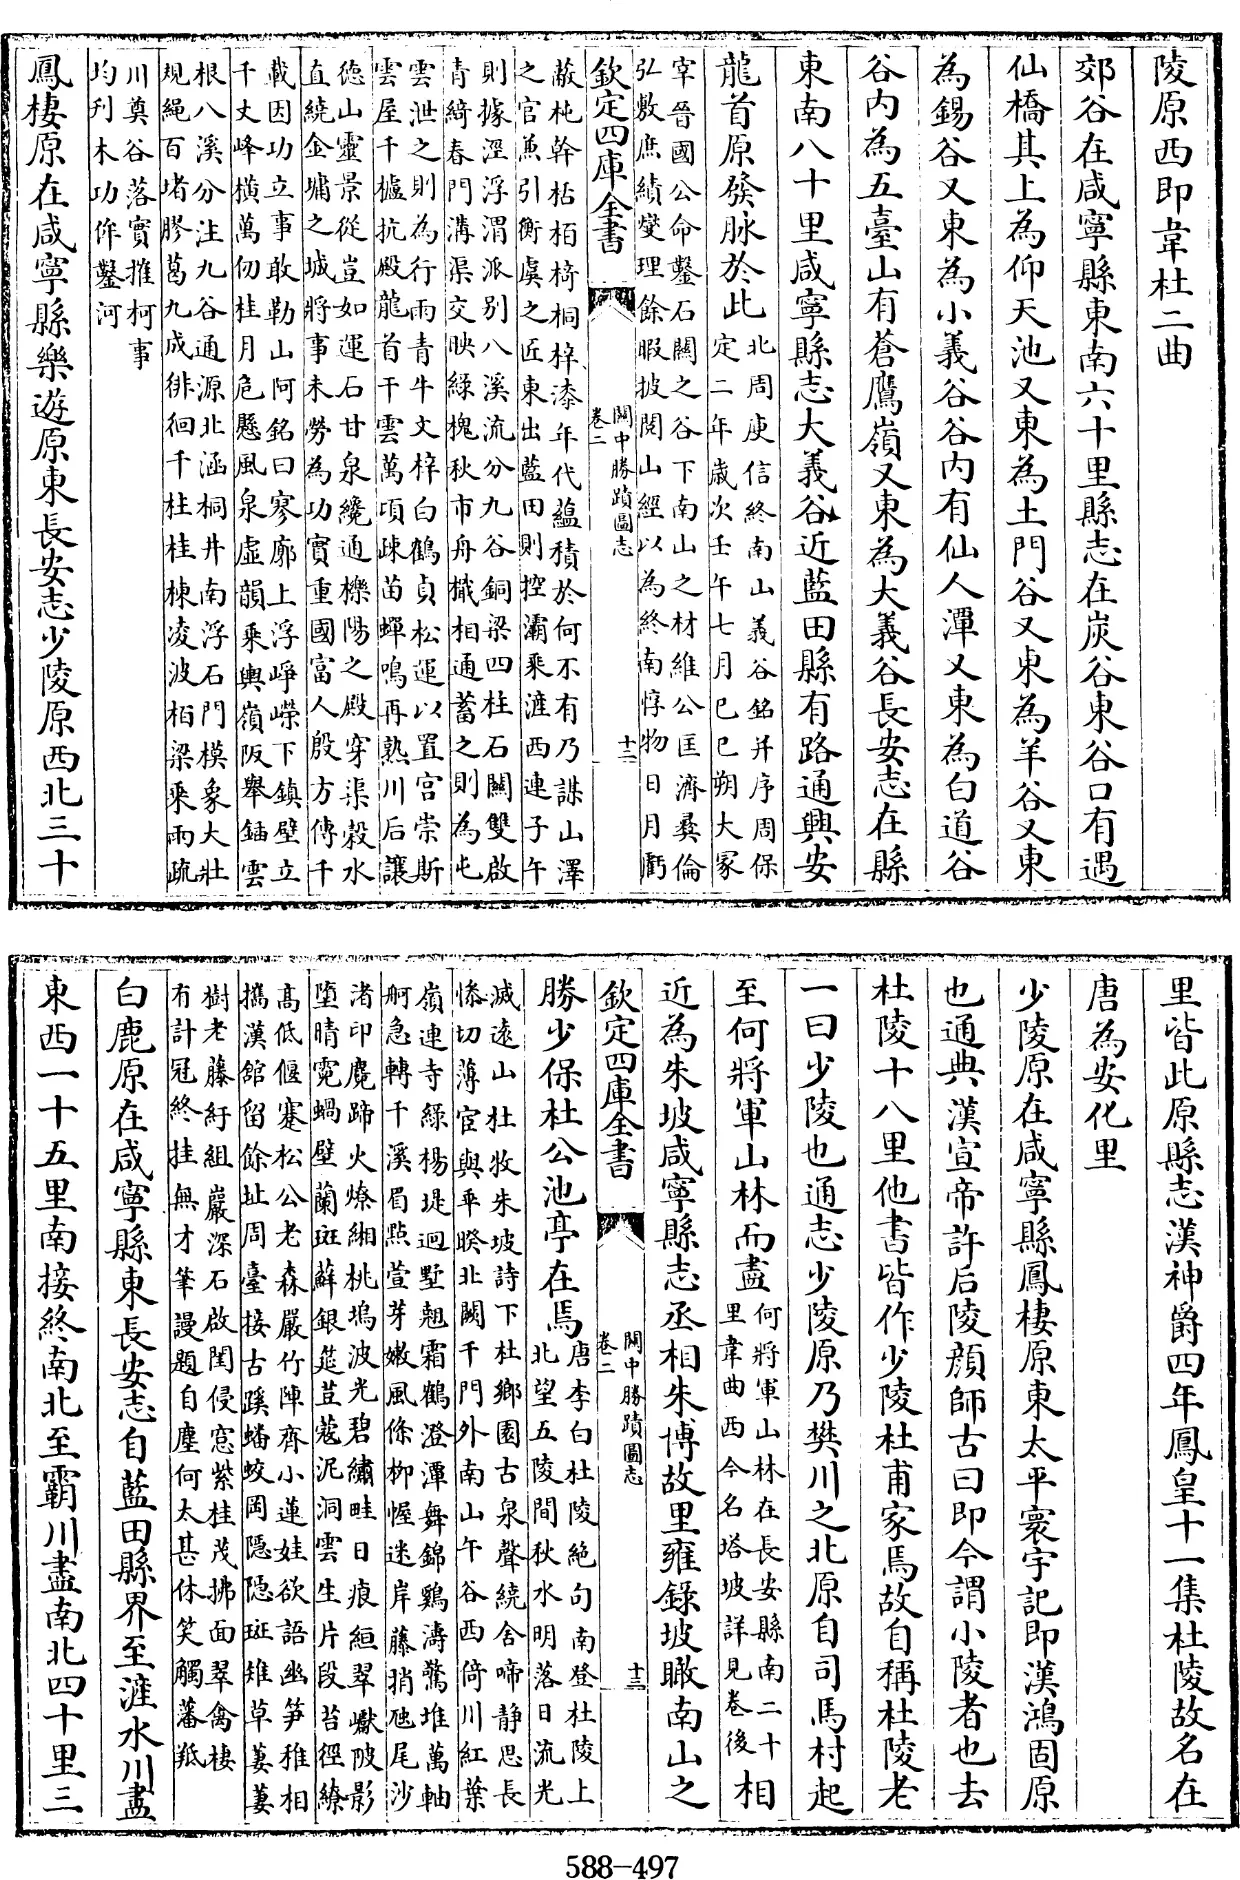 陵原西即韋杜二曲
郊谷在咸寧縣東南六十里縣志在炭谷東谷口有遇
仙橋其上為仰天池又東為土門谷又東為羊谷又東
為錫谷又東為小義谷谷內有仙人潭又東為白道谷
谷內為五臺山有蒼鷹嶺又東為大義谷長安志在縣
東南八十里咸寧縣志大義谷近藍田縣有路通興安
龍首原發脉於此北周庾信終南山義谷銘并序周保
定二年歲次壬午七月己巳朔大冢
宰晉國公命鑿石闗之谷下南山之材維公匡濟彛倫
弘敷庶績燮理餘暇披閱山經以為終南惇物日月虧
欽定四庫全書
關中勝蹟圖志
卷二
十二
蔽杶幹栝栢椅桐梓漆年代蘊積於何不有乃謀山澤
之官兼引衡虞之匠東出藍田則控灞乘滻西連子午
則據涇浮渭派别八溪流分九谷銅梁四柱石闗雙啟
青綺春門溝渠交映綠槐秋市舟檝相通蓄之則為屯
雲泄之則為行雨青牛文梓白鶴貞松運以置宫崇斯
雲屋千櫨抗殿龍首干雲萬頃疎苗蟬鳴再熟川后讓
德山靈景從豈如運石甘泉纔通櫟陽之殿穿渠穀水
直繞金墉之城將事未勞為功實重國富人殷方傳千
載因功立事敢勒山阿銘曰寥廓上浮崢嶸下鎮壁立
千丈峰橫萬仞桂月危懸風泉虛韻乘輿嶺阪舉鍤雲
根八溪分注九谷通源北涵桐井南浮石門模象大壯
規繩百堵膠葛九成徘徊千柱桂棟凌波栢梁乘雨疏
川奠谷落實摧柯事
均刋木功侔鑿河
鳳棲原在咸寧縣樂遊原東長安志少陵原西北三十
里皆此原縣志漢神爵四年鳳皇十一集杜陵故名在
唐為安化里
少陵原在咸寧縣鳳棲原東太平寰宇記即漢鴻固原
也通典漢宣帝許后陵顏師古曰即今謂小陵者也去
杜陵十八里他書皆作少陵杜甫家焉故自稱杜陵老
一曰少陵也通志少陵原乃樊川之北原自司馬村起
至何將軍山林而盡何將軍山林在長安縣南二十
里韋曲西今名塔坡詳見卷後相
近為朱坡咸寧縣志丞相朱博故里雍錄坡瞰南山之
欽定四庫全書
關中勝蹟圖志
卷二
十三
勝少保杜公池亭在焉唐李白杜陵絶句南登杜陵上
北望五陵間秋水明落日流光
滅遠山杜牧朱坡詩下杜鄉園古泉聲繞舍啼靜思長
慘切薄宦與乖睽北闕千門外南山午谷西倚川紅葉
嶺連寺綠楊堤迥墅翹霜鶴澄潭舞錦鷄濤驚堆萬軸
舸急轉千溪眉點萱芽嫩風條柳幄迷岸藤梢虺尾沙
渚印麑蹄火燎緗桃塢波光碧繡畦日痕絙翠巘陂影
墮晴霓蝸壁蘭斑蘚銀筵荳蔻泥洞雲生片段苔徑繚
高低偃蹇松公老森嚴竹陣齊小蓮娃欲語幽笋稚相
攜漢舘留餘址周臺接古蹊蟠蛟岡隠隠斑雉草萋萋
樹老藤紆組巖深石啟閨侵窓紫桂茂拂面翠禽棲
有計冠終挂無才筆謾題自塵何太甚休笑觸藩羝
白鹿原在咸寧縣東長安志自藍田縣界至滻水川盡
東西一十五里南接終南北至霸川盡南北四十里三
588-497